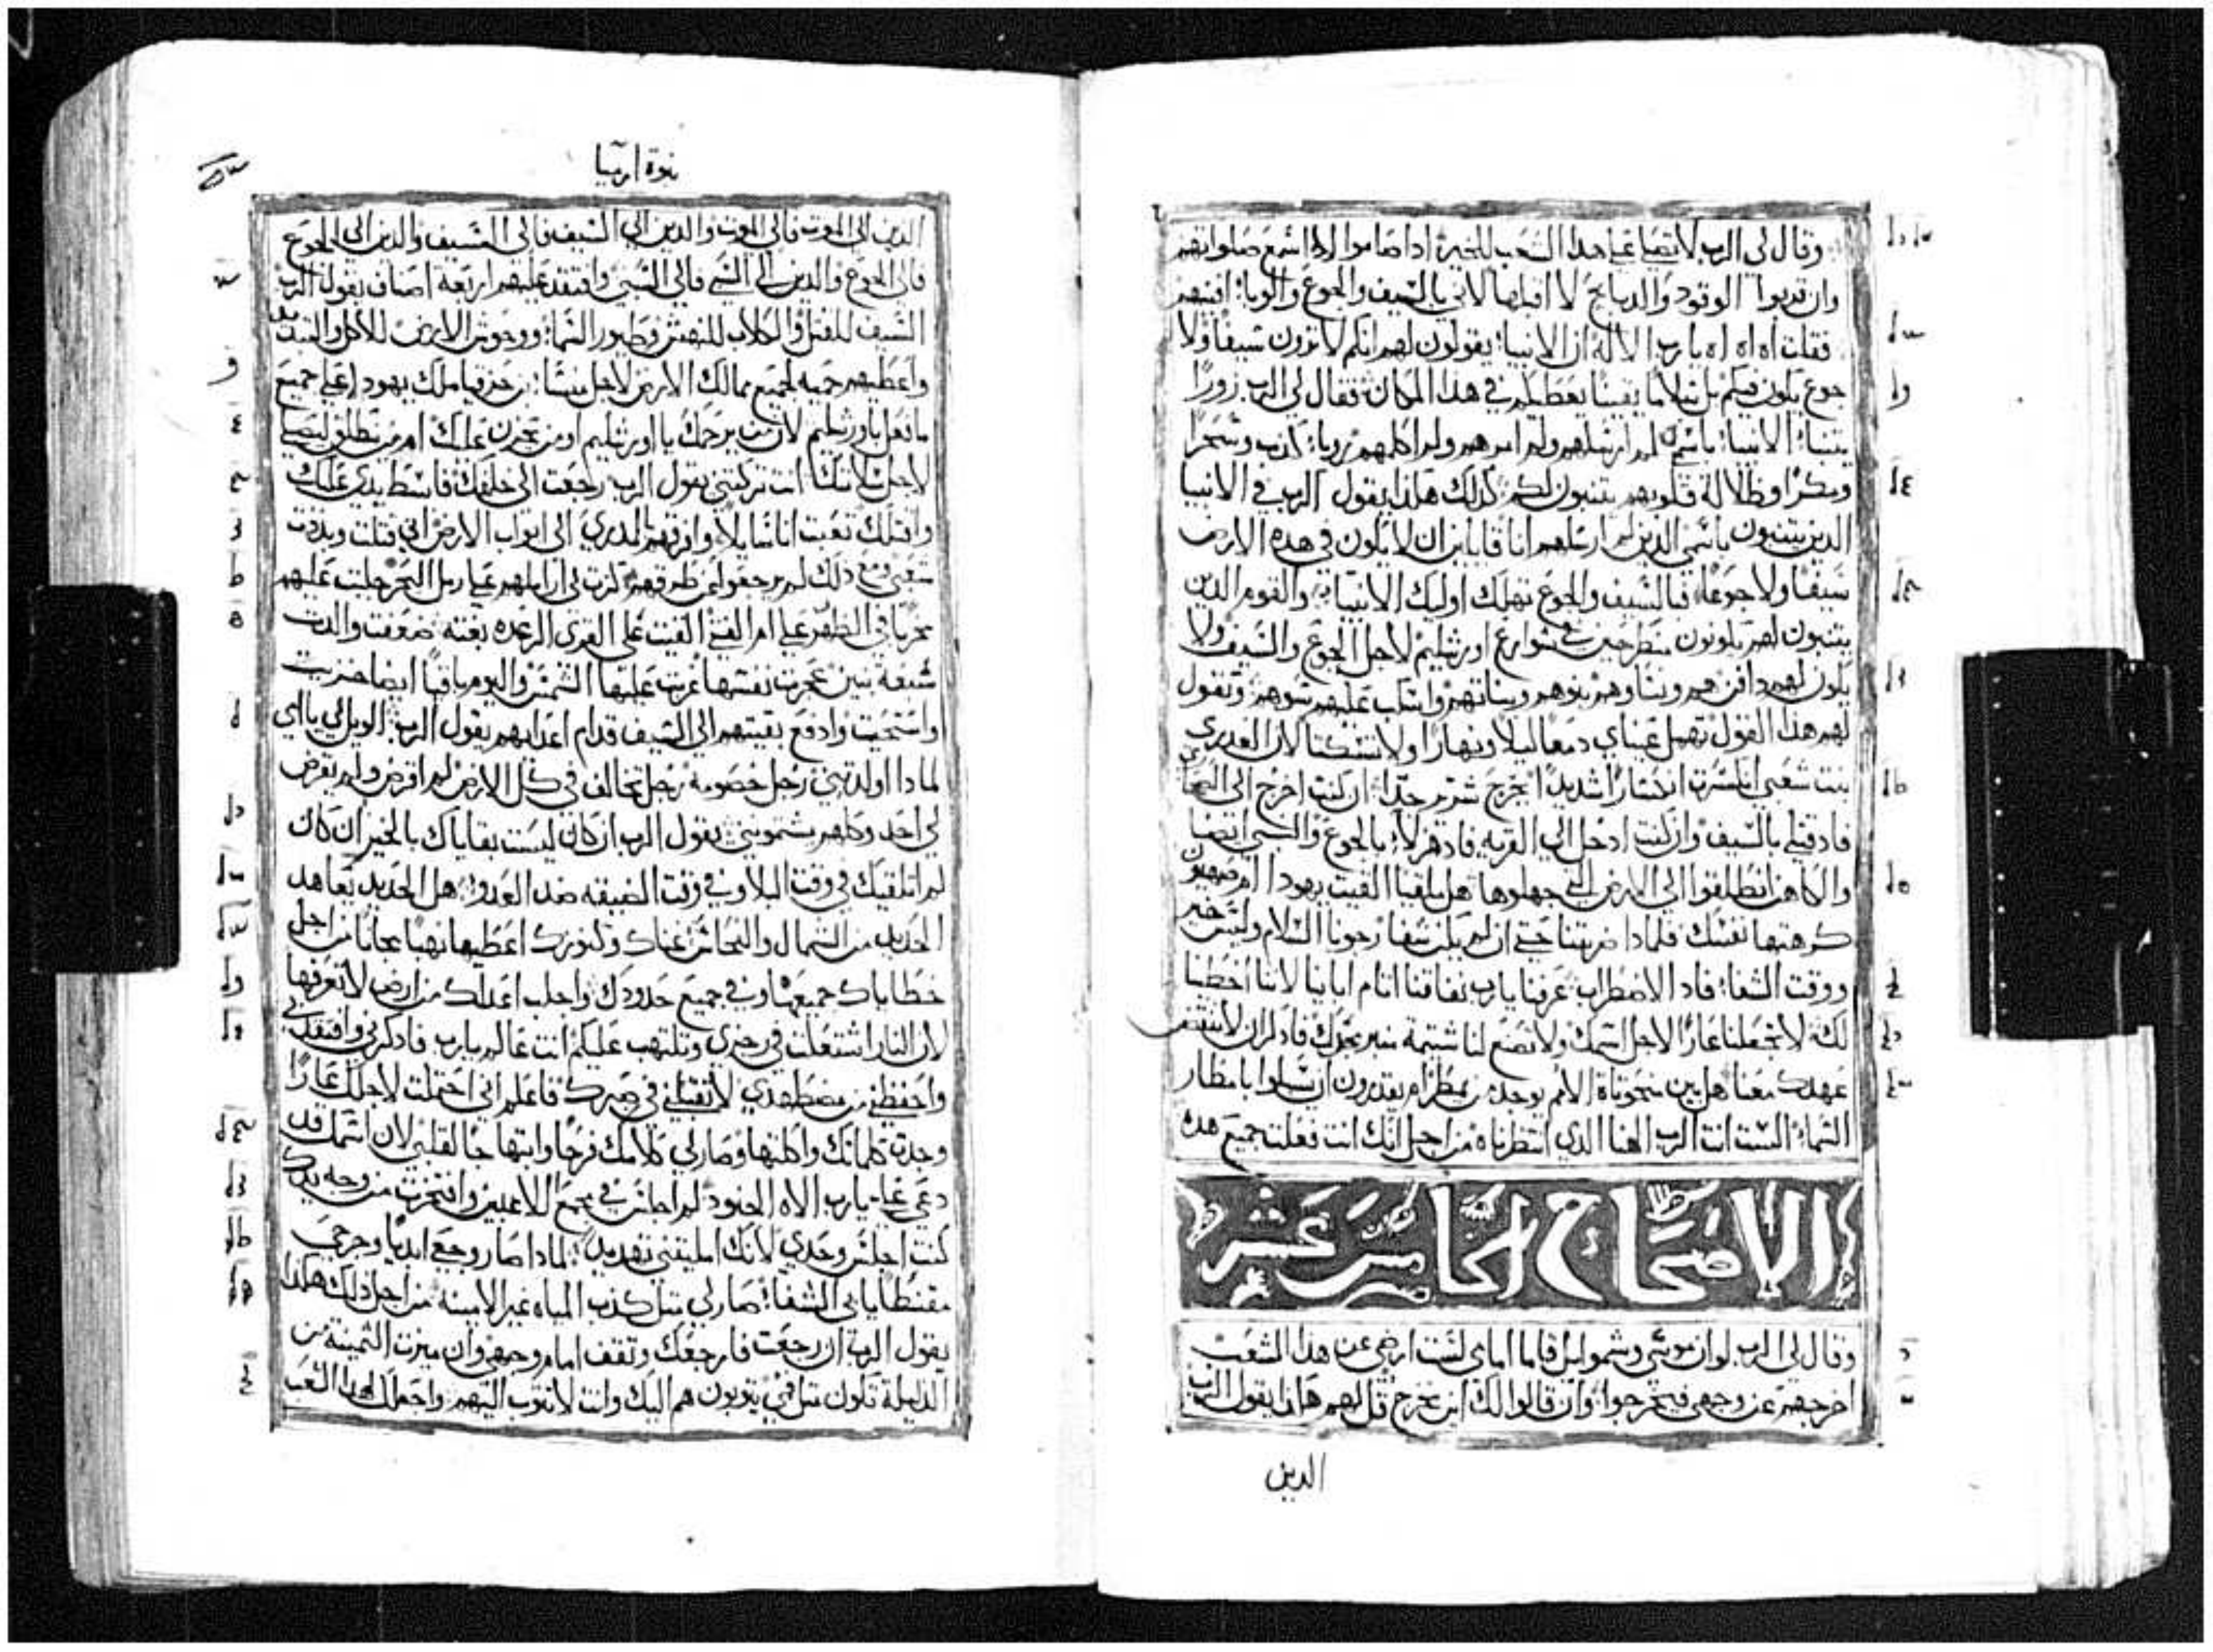 وقال لي الرب لا تصلي علي هدا الشعب للخير ادا صاموا لا اسمع صلواتهم
وان قدموا الوقود والدبايح لا اقبلها لاني بالسيف والجوع والوبا افنيهم
فقلت اه اه اه يا رب الاله ان الانبيا يقولون لهم انكم لا ترون سيفا ولا
جوع يكون فيكم بل سلاما يقينا يعطيكم في هدا المكان فقال لي الرب زورا
يتنبا الانبيا باسمي لم ارسلهم ولم امرهم ولم اكلمهم رويا كدب وسحرا
ومكرا وظلالة قلوبهم يتنبون لكم كدلك هكدا يقول الرب في الانبيا
الدين يتنبون باسمي الدين لم ارسلهم انا قايلين ان لا يكون في هده الارض
سيفا ولا جوعا فبالسيف والجوع تهلك اوليك الانبيا والقوم الدين
يتنبون لهم يكونون منطرحين في شوارع اورشليم لاجل الجوع والسيف ولا
يكون لهم دافن هم ونساوهم بنوهم وبناتهم واسكب عليهم سوهم وتقول
لهم هدا القول تهمل عيناي دمعا ليلا ونهارا ولا تسكتا لان العدري
بنت شعبي انكسرت انكسارا شديدا بجرح شرير جدا ان كنت اخرج الى الصحاري
فادا قتلي بالسيف وان كنت ادخل الي القريه فادا هزلا بالجوع والنبي ايضا
والكاهن انطلقوا الي الارض التي جهلوها هل ملقيا القيت يهودا ام صهيون
كرهتها نفسك فلمادا ضربتنا حتي ان لم يكن شفا رجونا السلام وليس خير
ووقت الشفا فادا الاضطراب عرفنا يا رب نفاقنا اتام ابانا لاننا اخطينا
لك لا تجعلنا عارا لاجل اسمك ولا تصنع لنا شتيمة منبر مجدك فادكر ان لا تنقض
عهدك معنا هل بين منحوتاة الامم يوجد من يمطر ام يقدرون ان يسلوا بامطار
السماء الست انت الرب الهنا الدي انتظرناه من اجل انك انت فعلت جميع هده
الاصحاح الخامس عشر
وقال لي الرب لو ان موسي وشموايل قاما امامي لست ارضي عن هدا الشعب
اخرجهم عن وجهي فيخرجوا وان قالوا لك اين نخرج قل لهم هكدا يقول الرب
الدين
نبوة ارميا
الدين الى الموت فالي الموت والدين الي السيف فالى السيف والدين الى الجوع
فالى الجوع والدين الى السبي فالي السبي وافتقد عليهم اربعة اصناف يقول الرب
السيف للقتل والكلاب للنهش وطيور السما ووحوش الارض للاكل والتبديد
واعطيهم حميه لجميع ممالك الارض لاجل منشا بن حزقيا ملك يهودا علي جميع
ما فعل باورشليم لان من يرحمك يا اورشليم او من يحزن عليك ام من ينطلق ليصلي
لاجل سلامتك انت تركتني يقول الرب رجعت الى خلفك فابسط يدي عليك
واقتلك تعبت انا سايلا وافرقهم بالمدري الى ابواب الارض اني قتلت وبددت
شعبي ومع دلك لم يرجعوا عن طرقهم كترت لي اراملهم علي رمل البحر جلبت عليهم
مخربا في الظهر علي ام الفتى القيت على القرى الرعده بغته ضعفت والدت
سبعة بنين عجرت نفسها غربت عليها الشمس واليوم باقيا ايضا خزيت
واستحيت وادفع بقيتهم الى السيف قدام اعدايهم يقول الرب الويل لي يا امي
لمادا اولدتيني رجل خصومه رجل تخالف في كل الارض لم اقرض ولم يقرض
لي احد وكلهم يشتموني يقول الرب ان كان ليست بقاياك بالخير ان كان
لم اتلقيك في وقت البلا وفي وقت الضيقه ضد العدو هل الحديد يعاهد
الحديد من الشمال والنحاس غناك وكنوزك اعطيها نهبا مجانا من اجل
خطاياك جميعها وفي جميع حدودك واجلب اعداك من ارض لا تعرفها
لان النار اشتعلت في رجزي وتلتهب عليكم انت عالم يا رب فادكرني وافتقدني
واحفظني من مضطهدي لا تقبلني في صبرك فاعلم اني احتملت لاجلك عارا
وجدت كلماتك واكلتها وصار لي كلامك فرحا وابتهاجا لقلبي لان اسمك قد
دعي علي يا رب الاه الجنود لم اجلس في مجمع اللاعبين وافتخرت من وجه يدك
كنت اجلس وحدي لانك امليتني تهديد لمادا صار وجعي ابديا وجرحي
مقنطا يابي الشفا صار لي متل كدب المياه غير الامينه من اجل دلك هكدا
يقول الرب ان رجعت فارجعك وتقف امام وجهي وان ميزت التمينة من
الدليلة تكون متل في يتوبون هم اليك وانت لا تتوب اليهم واجعلك لهدا الشعب